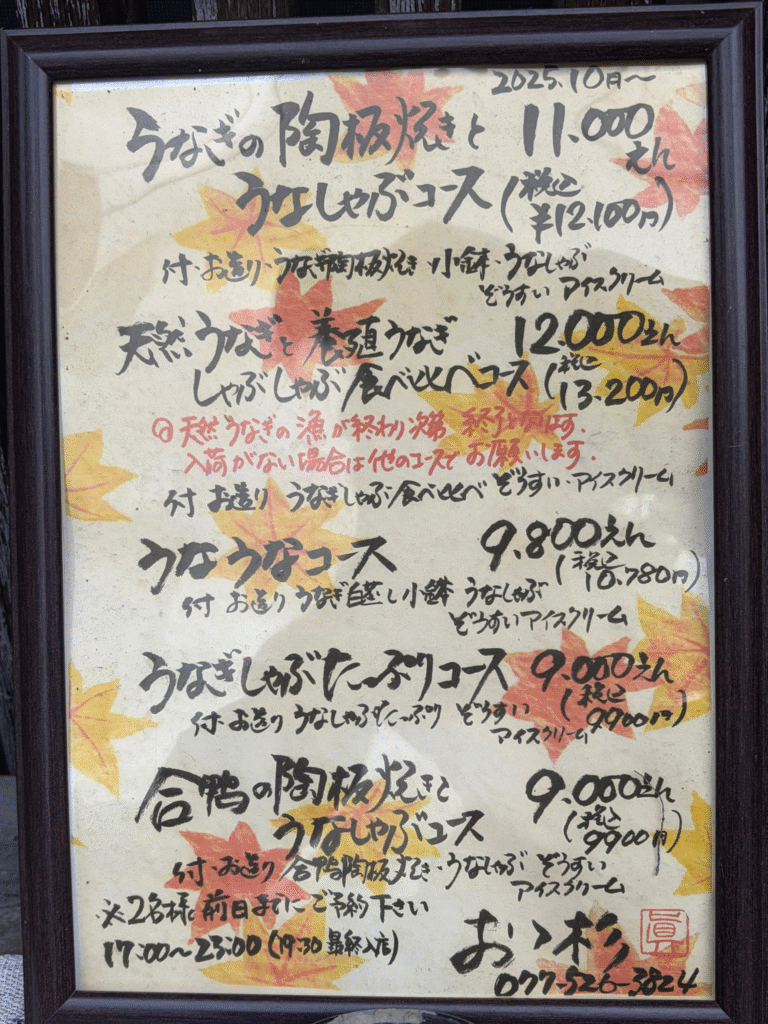 2025.10日〜
うなぎの陶板焼きと 11.000えん
うなしゃぶコース (税込¥12.100円)
付・お造り・うなぎ陶板焼き・小鉢・うなしゃぶ
ぞうすい アイスクリーム
天然うなぎと養殖うなぎ 12.000えん
しゃぶしゃぶ食べ比べコース (税込13.200円)
◎天然うなぎの漁が終わり次第 終了となります.
入荷がない場合は他のコースでお願いします.
付 お造り うなぎしゃぶ食べ比べ ぞうすい・アイスクリーム
うなうなコース 9.800えん
(税込10.780円)
付 お造り うなぎ白蒸し 小鉢 うなしゃぶ
ぞうすいアイスクリーム
うなぎしゃぶたっぷりコース 9.000えん
(税込9900円)
付・お造り うなしゃぶたっぷり ぞうすい
アイスクリーム
合鴨の陶板焼きと 9.000えん
うなしゃぶコース (税込9900円)
付・お造り 合鴨陶板焼き・うなしゃぶ ぞうすい
アイスクリーム
※2名様 前日までにご予約下さい
17:00〜23:00 (19:30 最終入店)
おゝ杉 眞
077-526-3824